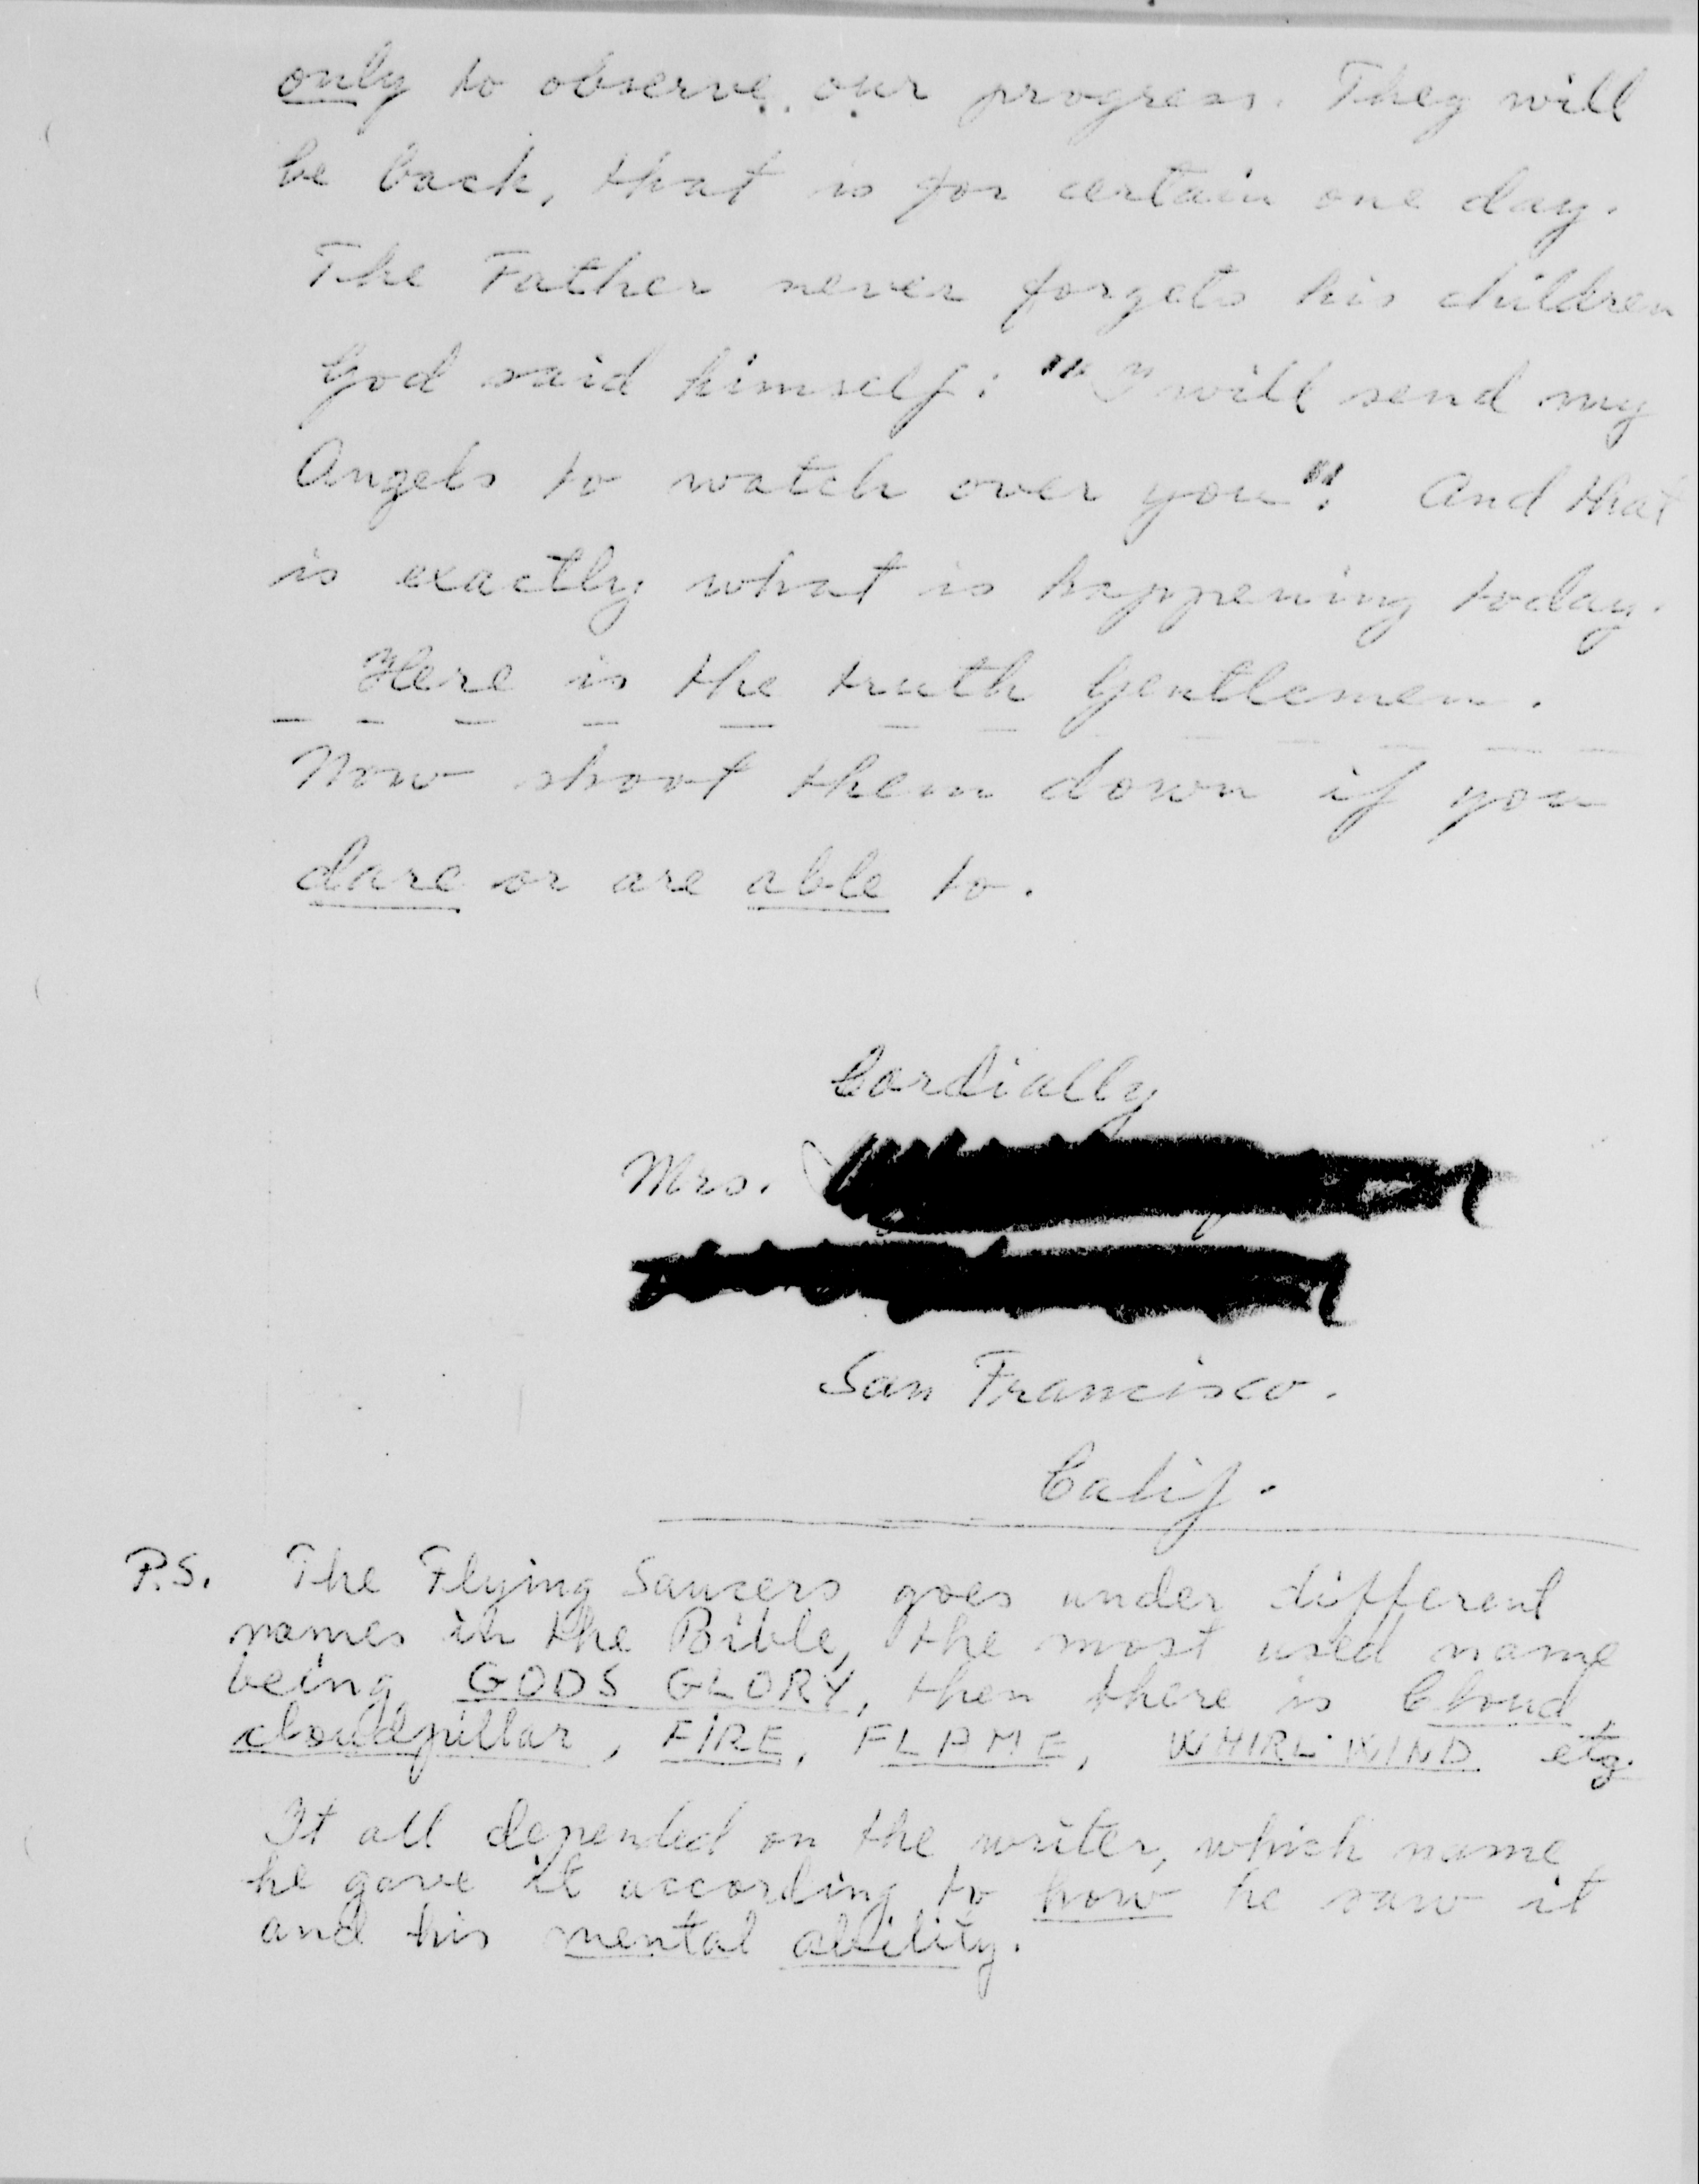 only to observe our progress. They will
be back, that is for certain one day.
The Father never forgets his children
God said himself: "" I will send my
Angels to watch over you"". And that
is exactly what is happening today.
Here is the truth Gentlemen.
Now shoot them down if you
dare or are able to.
Cordially
Mrs.
San Francisco.
Calif.
P.S. The Flying Saucers goes under different
names in the Bible, the most used name
being GODS GLORY, then there is Cloud,
cloudpillar, FIRE, FLAME, WHIRLWIND etg.
It all depended on the writer, which name
he gave it according to how he saw it
and his mental ability.